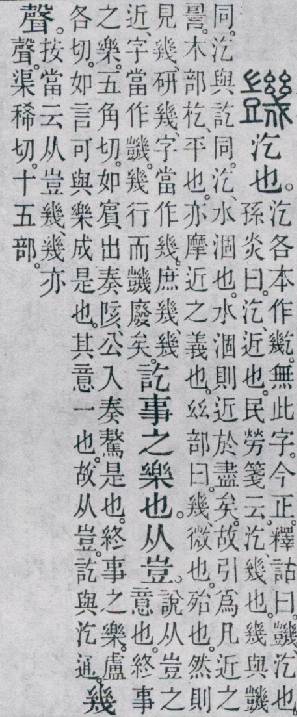 𧰙汔也。
汔各本作。無此字。今正。釋詁曰。𧰙、汔也。
孫炎曰。汔、近也。民勞箋云。汔、幾也。幾與𧰙
同。汔與訖同。汔、水涸也。水涸則近於盡矣。故引爲凡近之
䛐。木部杚、平也。亦摩近之義也。𢆶部曰。幾、微也。殆也。然則
見幾、研幾、字當作幾。庶幾、幾
近、字當作𧰙。幾行而𧰙廢矣。
訖事之樂也。从豈。
說从豈之
意也。終事
之樂。五角切。如賔出奏陔、公入奏驁是也。終事之樂。盧
各切。如言可與樂成是也。其意一也。故从豈。訖與汔通。
幾
聲。
按當云从豈幾、幾亦
聲。渠稀切。十五部。